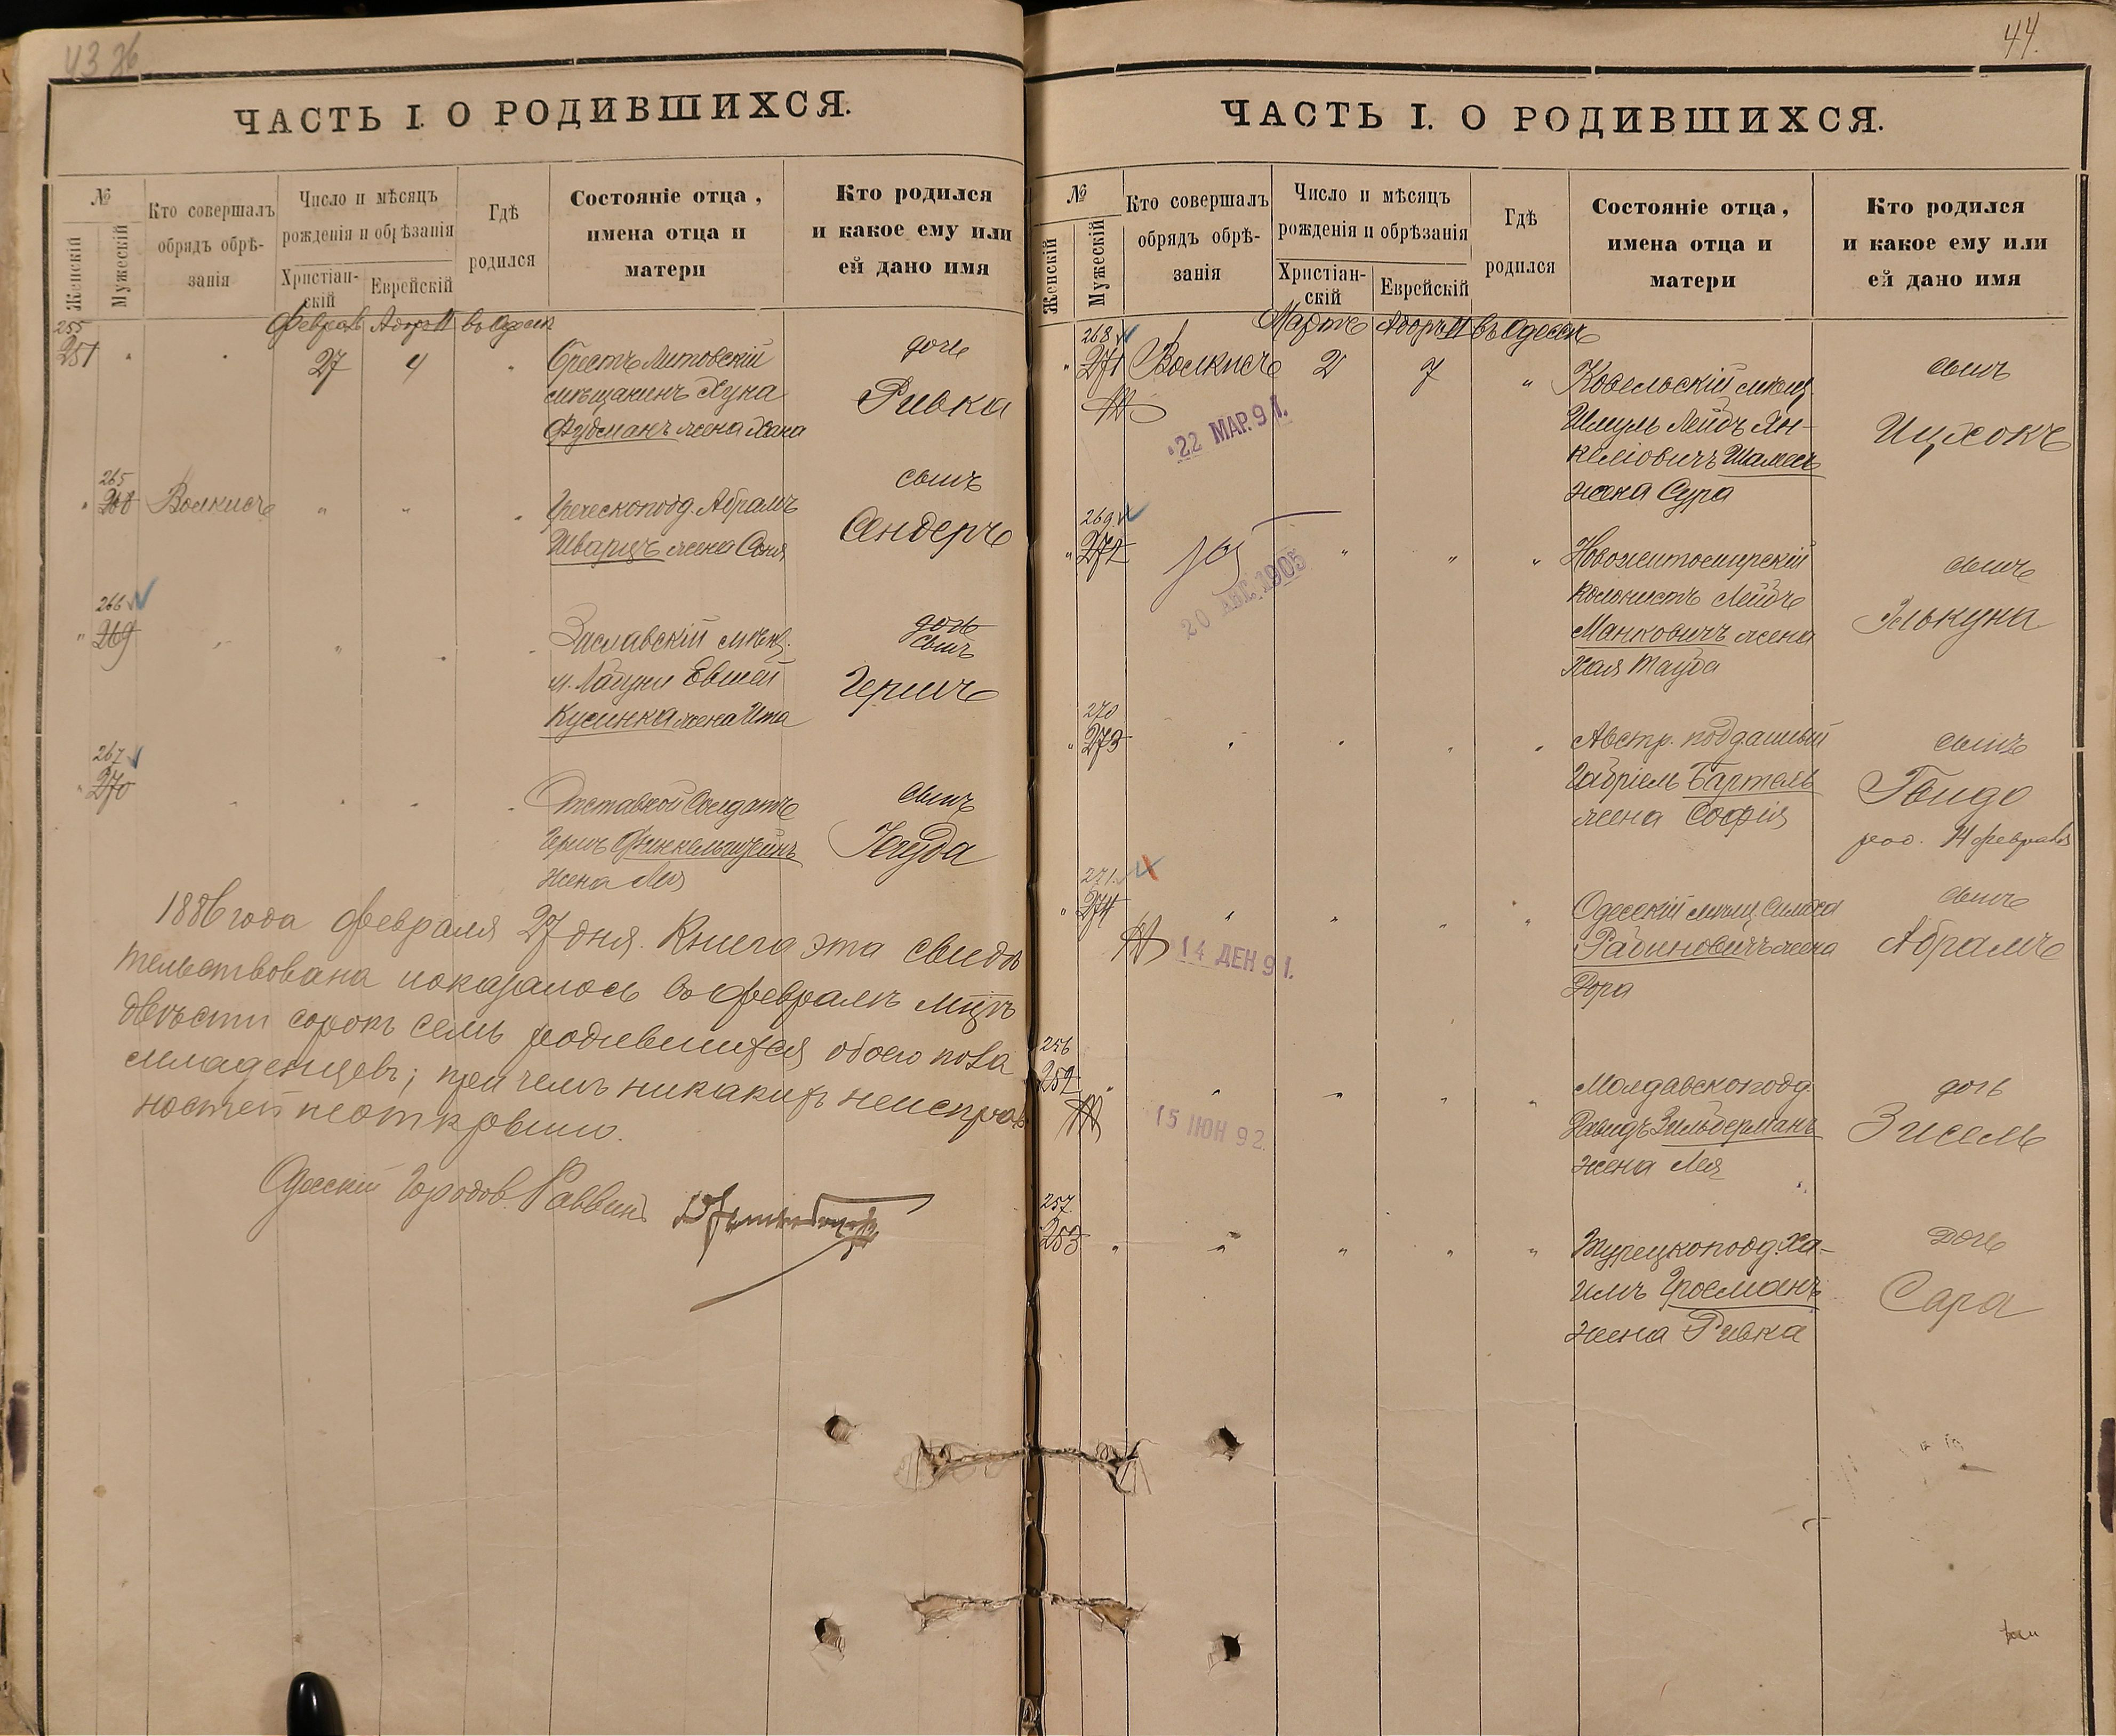 43 36
ЧАСТЬ I. О РОДИВШИХСЯ.
№
Женскій
Мужескій
Кто совершалъ
обрядъ обрѣ-
занія
Число и мѣсяцъ
рожденія и обрѣзанія
Христіан-
скій
Еврейскій
Гдѣ
родился
Состояніе отца,
имена отца и
матери
Кто родился
и какое ему или
ей дано имя
Февраль Адоръ II въ Одессѣ
255
251 27 4
Брестъ Литовскій
мѣщанинъ Хуна
Фудманъ жена Хана
дочь
Ривка
265
268 Волкисъ
Греческопод. Абрамъ
Шварцъ жена Соня
сынъ
Сендеръ
266
269
Заславскій мѣщ.
Евшей
Кусинка жена Ита
дочь
сынъ
Гершъ
267
270
Отставной Солдатъ
Гершъ Финкельштейнъ
жена Лея
сынъ
Іегуда
1886 года Февраля 27 дня. Книга эта свидѣ
тельствована показалось въ Февралѣ мцѣ
двѣсти сорокъ семь родившихся обоего пола
младенцевъ; при чемъ никакихъ неисправ
ностей не открыто.
Одесскій Городов. Раввинъ
44.
ЧАСТЬ I. О РОДИВШИХСЯ.
№
Женскій
Мужескій
Кто совершалъ
обрядъ обрѣ-
занія
Число и мѣсяцъ
рожденія и обрѣзанія
Христіан-
скій
Еврейскій
Гдѣ
родился
Состояніе отца,
имена отца и
матери
Кто родился
и какое ему или
ей дано имя
Мартъ Адоръ II въ Одессѣ
268
271 Волкисъ 2 7
22 МАР. 91.
Ковельскій мѣщ.
Шмуль Лейбъ Ян-
келіовичъ Шамесъ
жена Сура
сынъ
Ицхокъ
269
272
20 АВГ. 1905
Новожитомирскій
колонистъ Лейбъ
Манковичъ жена
Хая Тауба
сынъ
Элькуна
270
273
Австр. подданный
Габріель Бартель
жена Софія
сынъ
Гвидо
род. 14 февраля
271.
274
14 ДЕН 91.
Одесскій мѣщ. Симха
Рабиновичъ жена
Дора
сынъ
Абрамъ
256
252
15 ІЮН 92
Молдавскопод.
Давидъ Зильберманъ
жена Лея
дочь
Зисель
257.
253
Турецкопод. Ха-
имъ Гросманъ
жена Ривка
дочь
Сара